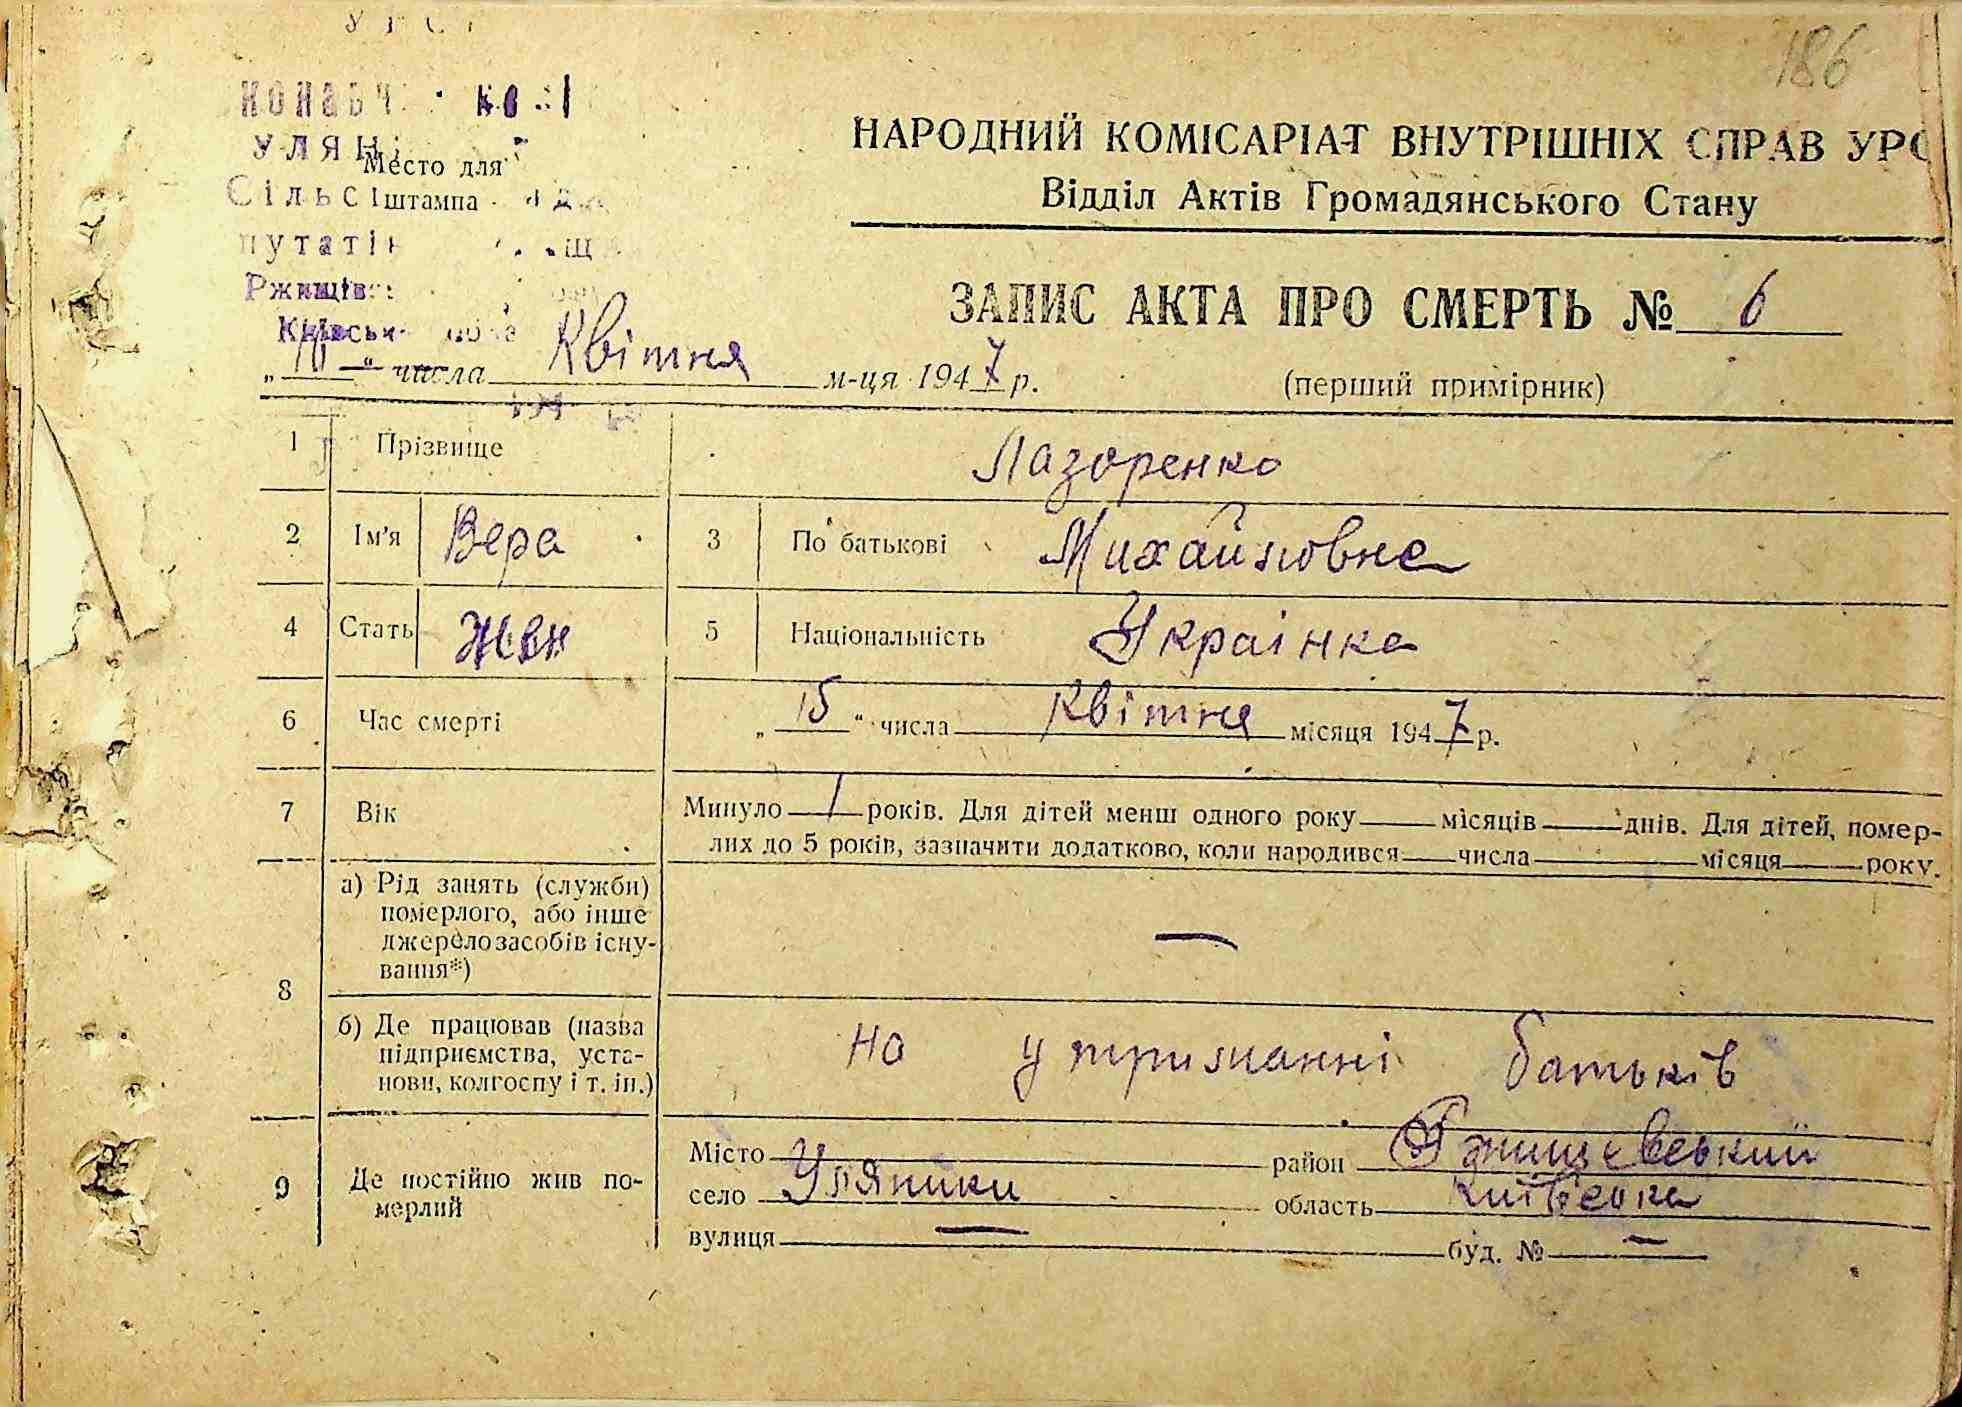 186
УЛЯН
Место для
Сільс штампа
путатів
Ржищів
Київськ
НАРОДНИЙ КОМІСАРІАТ ВНУТРІШНІХ СПРАВ УРС
Відділ Актів Громадянського Стану
ЗАПИС АКТА ПРО СМЕРТЬ № 6
„ “ числа Квітня м-ця 1947 р.
(перший примірник)
1 Прізвище Лазоренко
2 Ім'я Вера 3 По батькові Михайловна
4 Стать Жен 5 Національність Українка
6 Час смерті „15“ числа Квітня місяця 1947 р.
7 Вік Минуло 1 років. Для дітей менш одного року місяців днів. Для дітей, помер-
лих до 5 років, зазначити додатково, коли народився числа місяця року.
8 а) Рід занять (служби)
померлого, або інше
джерело засобів існу-
вання*) —
б) Де працював (назва
підприємства, уста-
нови, колгоспу і т. ін.) на утриманні батьків
9 Де постійно жив по-
мерлий
Місто район Ржищевський
село Уляники область Київська
вулиця — буд. № —